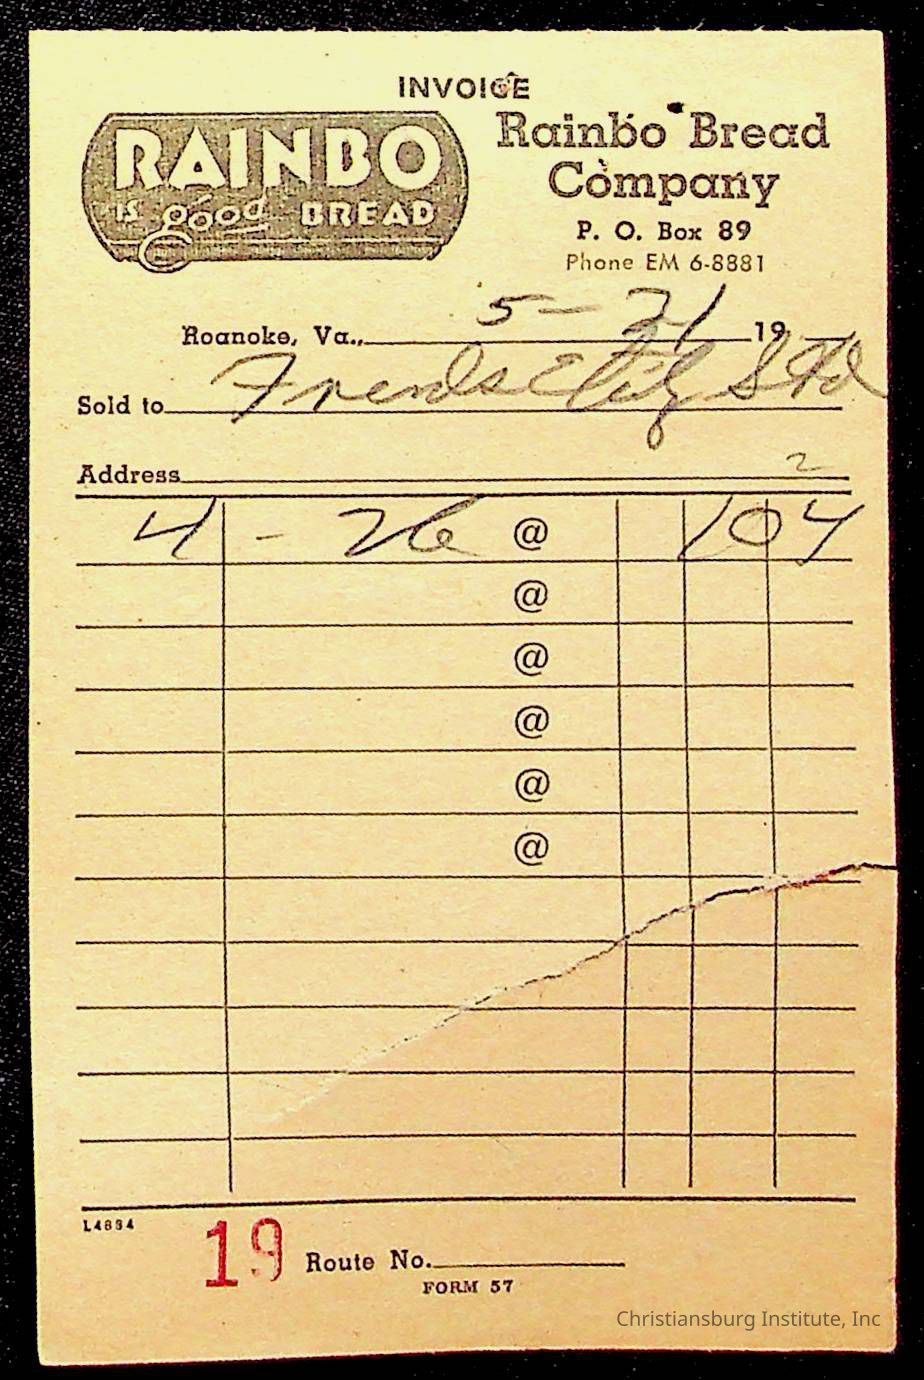 INVOICE
RAINBO
IS good BREAD
Rainbo Bread
Company
P. O. Box 89
Phone EM 6-8881
Roanoke, Va., 5-31 19
Sold to
Address 2
4 - 26 @ 104
@
@
@
@
@
L4884
19 Route No.
FORM 57
Christiansburg Institute, Inc